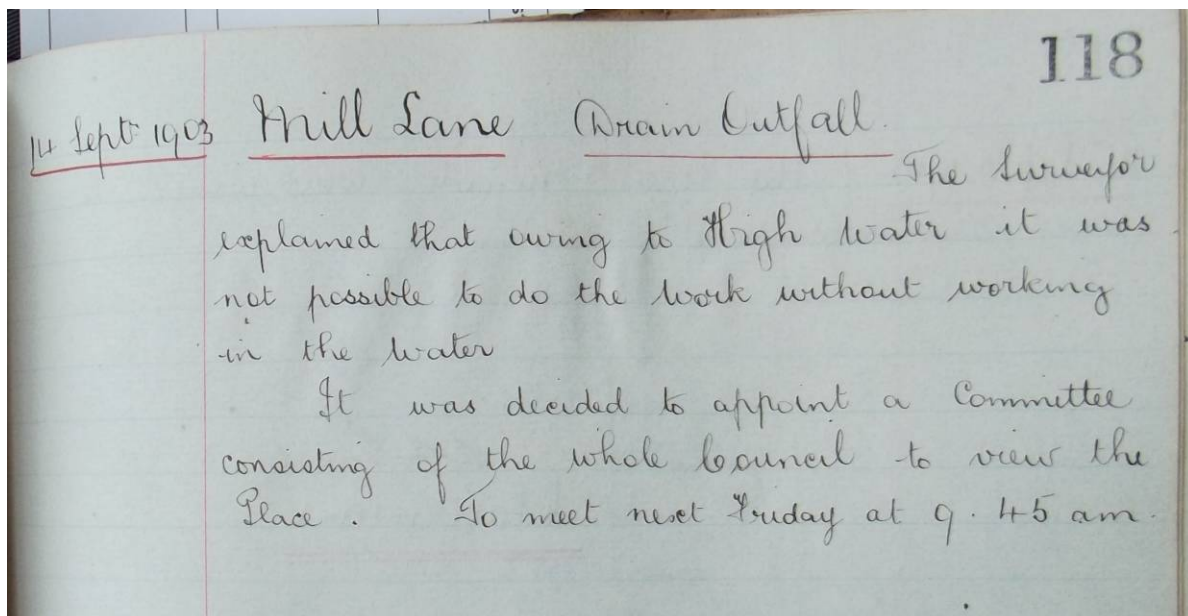 118
14 Sept 1903 Mill Lane Drain Outfall.
The Surveyor
explained that owing to High Water it was
not possible to do the Work without working
in the Water
It was decided to appoint a Committee
consisting of the whole Council to view the
Place. To meet next Friday at 9.45 am.